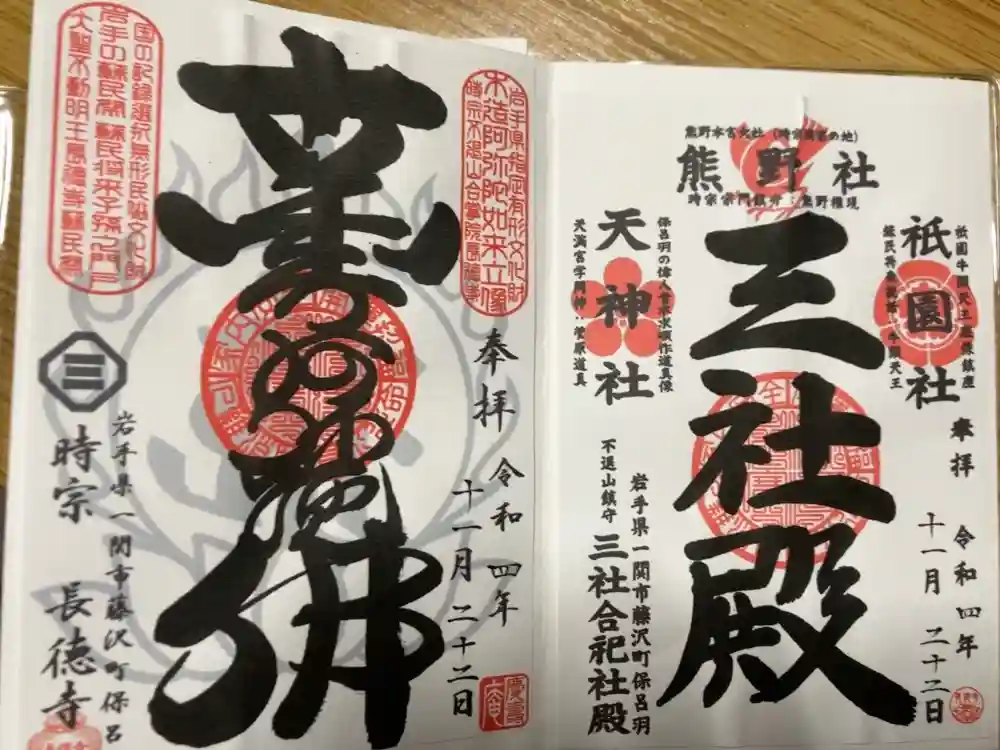 国の記録選択無形民俗文化財
岩手の蘇民祭 蘇民将来子孫之門戸
大聖不動明王長徳寺蘇民祭
岩手県指定有形文化財
木造阿弥陀如来立像
時宗不退山合掌院長徳寺
奉拝
令和四年
十一月二十二日
南無阿弥陀佛
岩手県一関市藤沢町保呂
時宗 長徳寺
熊野本宮大社（時宗開宗の地）
熊野社
時宗宗門鎮守：熊野権現
祇園社
祇園牛頭天王
牛頭天王
奉拝
令和四年
十一月二十二日
三社殿
保呂羽の偉人
天神社
天満宮学問神：菅原道真
岩手県一関市藤沢町保呂羽
不退山鎮守 三社合祀社殿